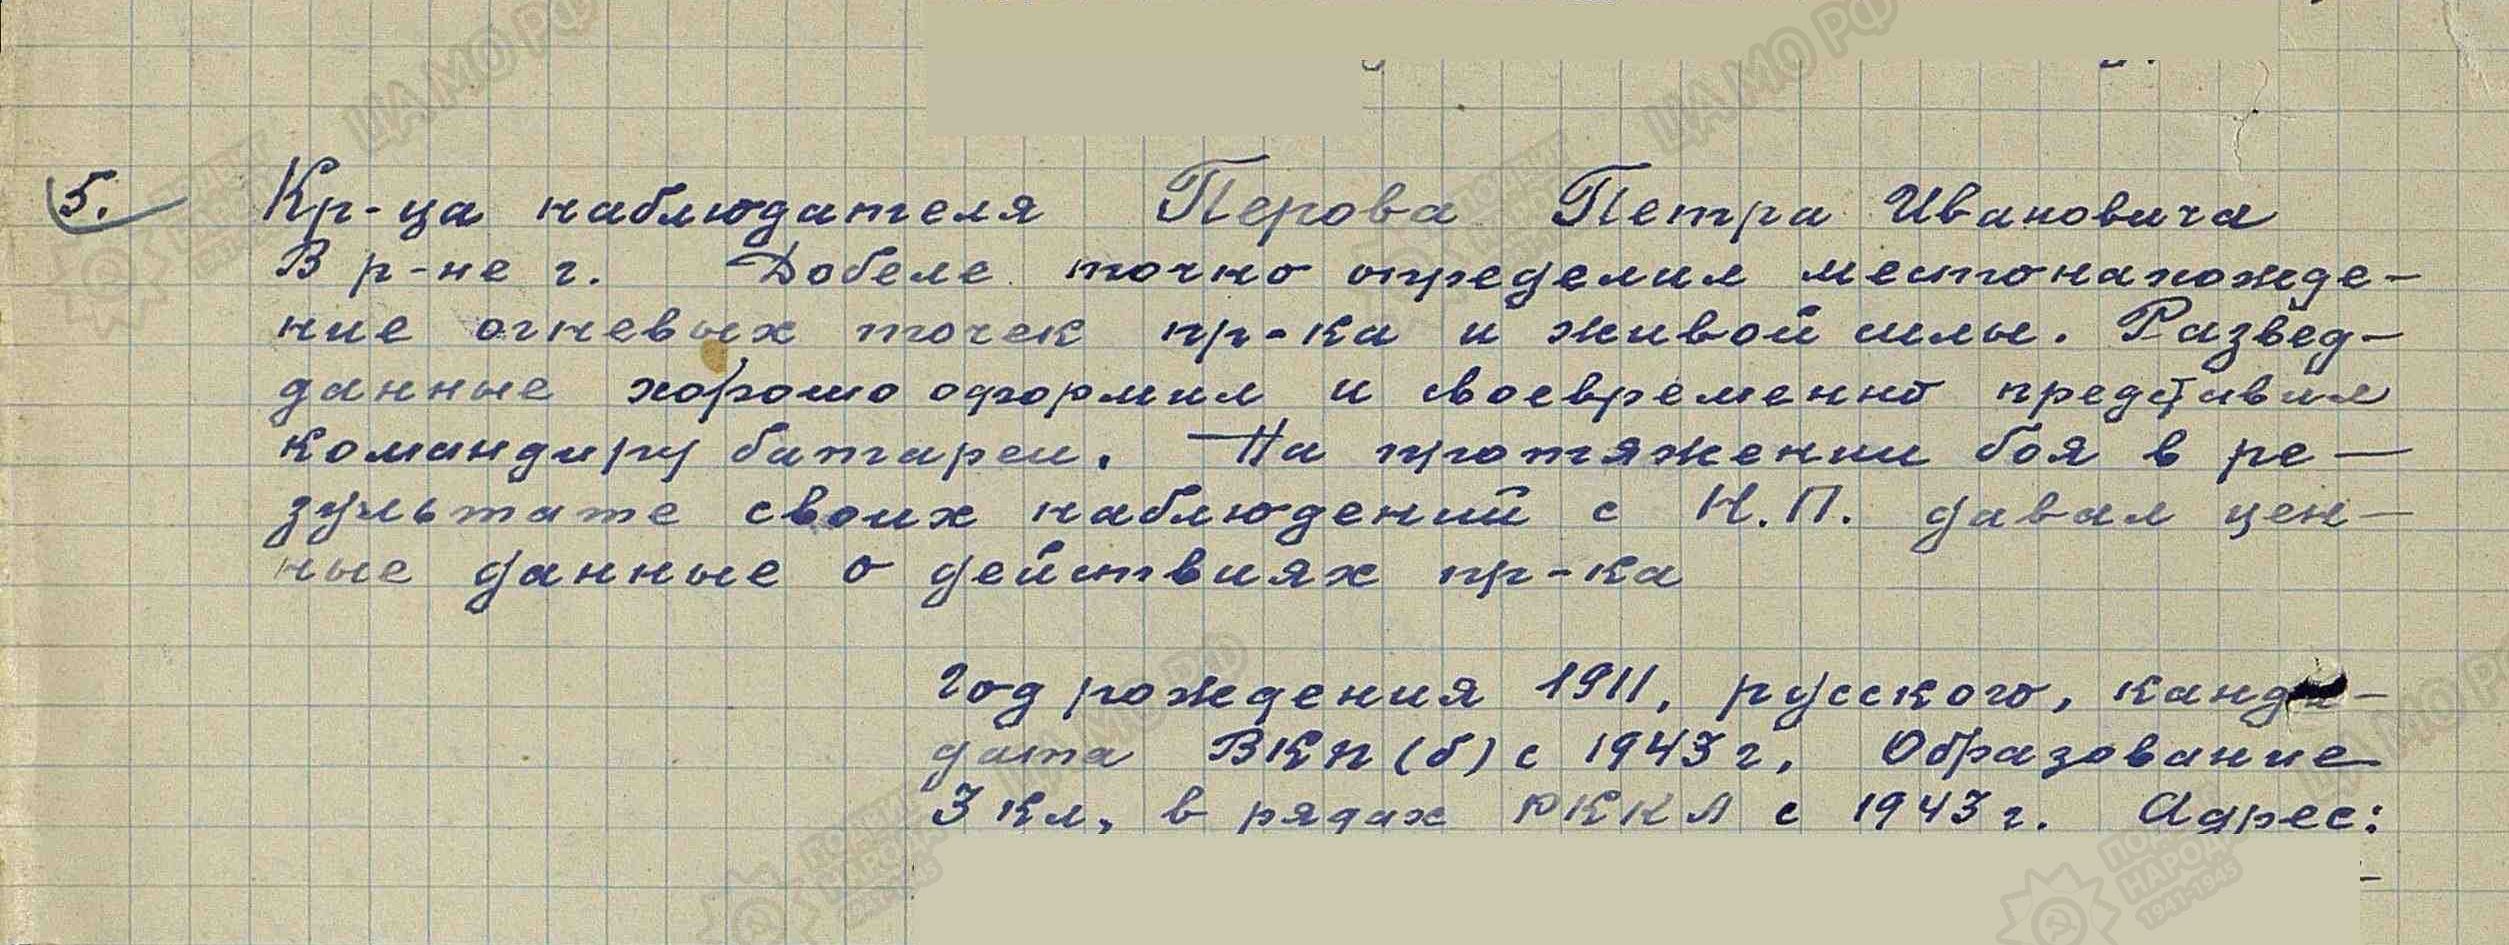 5. Кр-ца наблюдателя Перова Петра Ивановича
В р-не г. Добеле точно определил местонахожде-
ние огневых точек пр-ка и живой силы. Развед-
данные хорошо оформил и своевременно представил
командиру батареи. На протяжении боя в ре-
зультате своих наблюдений с Н.П. давал цен-
ные данные о действиях пр-ка
Год рождения 1911, русского, канди-
дата ВКП(б) с 1943 г. Образование
3 кл, в рядах РККА с 1943 г. Адрес:
ЦАМО РФ
ПОДВИГ
НАРОДА
1941-1945